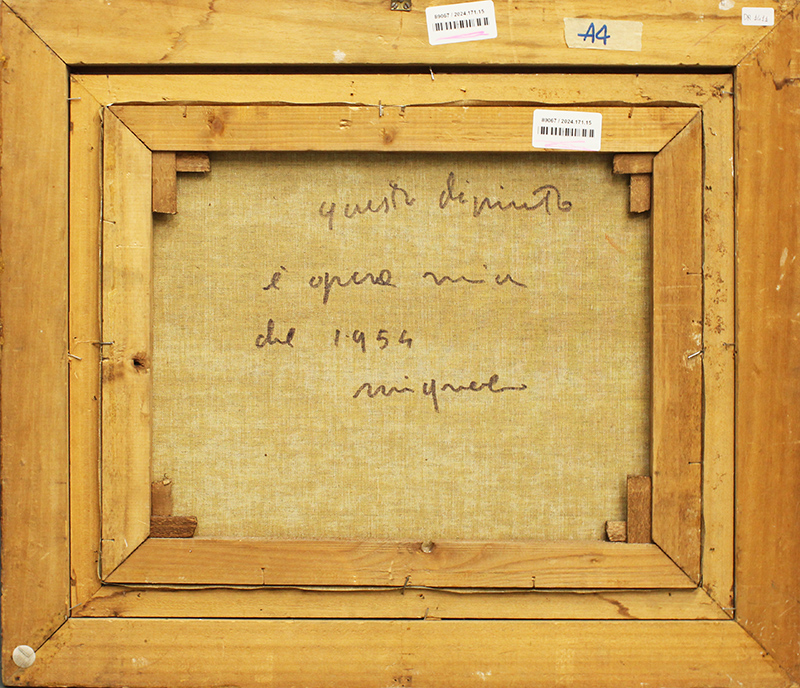 89067 / 2024.171.15
A4
89067 / 2024.171.15
questo dipinto
è opera mia
del 1954